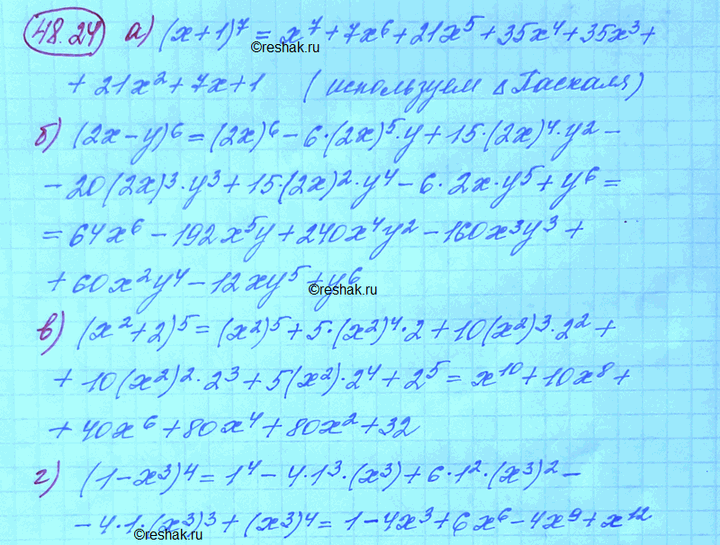 48.24 а) (x+1)⁷ = x⁷ + 7x⁶ + 21x⁵ + 35x⁴ + 35x³ +
©reshak.ru
+ 21x² + 7x + 1 (используем Δ Паскаля)
б) (2x-y)⁶ = (2x)⁶ - 6·(2x)⁵·y + 15·(2x)⁴·y² -
- 20(2x)³·y³ + 15·(2x)²·y⁴ - 6·2x·y⁵ + y⁶ =
= 64x⁶ - 192x⁵y + 240x⁴y² - 160x³y³ +
+ 60x²y⁴ - 12xy⁵ + y⁶
©reshak.ru
в) (x²+2)⁵ = (x²)⁵ + 5·(x²)⁴·2 + 10(x²)³·2² +
+ 10(x²)²·2³ + 5(x²)·2⁴ + 2⁵ = x¹⁰ + 10x⁸ +
+ 40x⁶ + 80x⁴ + 80x² + 32
г) (1-x³)⁴ = 1⁴ - 4·1³·(x³) + 6·1²·(x³)² -
- 4·1·(x³)³ + (x³)⁴ = 1 - 4x³ + 6x⁶ - 4x⁹ + x¹²
©reshak.ru